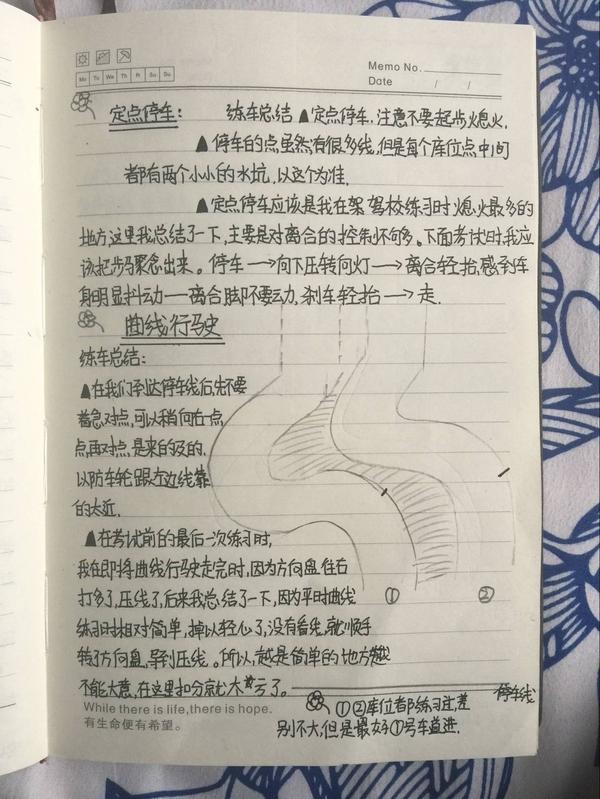 Memo No.
Mo Tu We Th Fr Sa Su
Date / /
定点停车: 练车总结 ▲定点停车,注意不要起步熄火,
▲停车的点虽然有很多线,但是每个库位点中间
都有两个小小的水坑,以这个为准.
▲定点停车应该是我在驾校练习时熄火最多的
地方,这里我总结了一下,主要是对离合的控制不够多。下面考试时,我应
该把步骤念出来。停车→向下压转向灯→离合轻抬,感到车
身明显抖动—离合脚不要动,刹车轻抬→走.
曲线行驶
练车总结:
▲在我们到达停车线后,先不要
着急对点,可以稍向右一点,
点,再对点,是来的及的.
以防车轮跟左边线靠
的太近.
▲在考试前的最后一次练习时,
我在即将曲线行驶走完时,因为方向盘往右
打多了,压线了,后来我总结了一下,因为平时曲线
练习时相对简单,掉以轻心了,没有看线,就顺手
转了方向盘,导到压线。所以,越是简单的地方越
不能大意,在这里扣分就太亏了。
① ②
停车线
①②库位者都练习过,差
别不大,但是最好①号车道进.
While there is life, there is hope.
有生命便有希望。